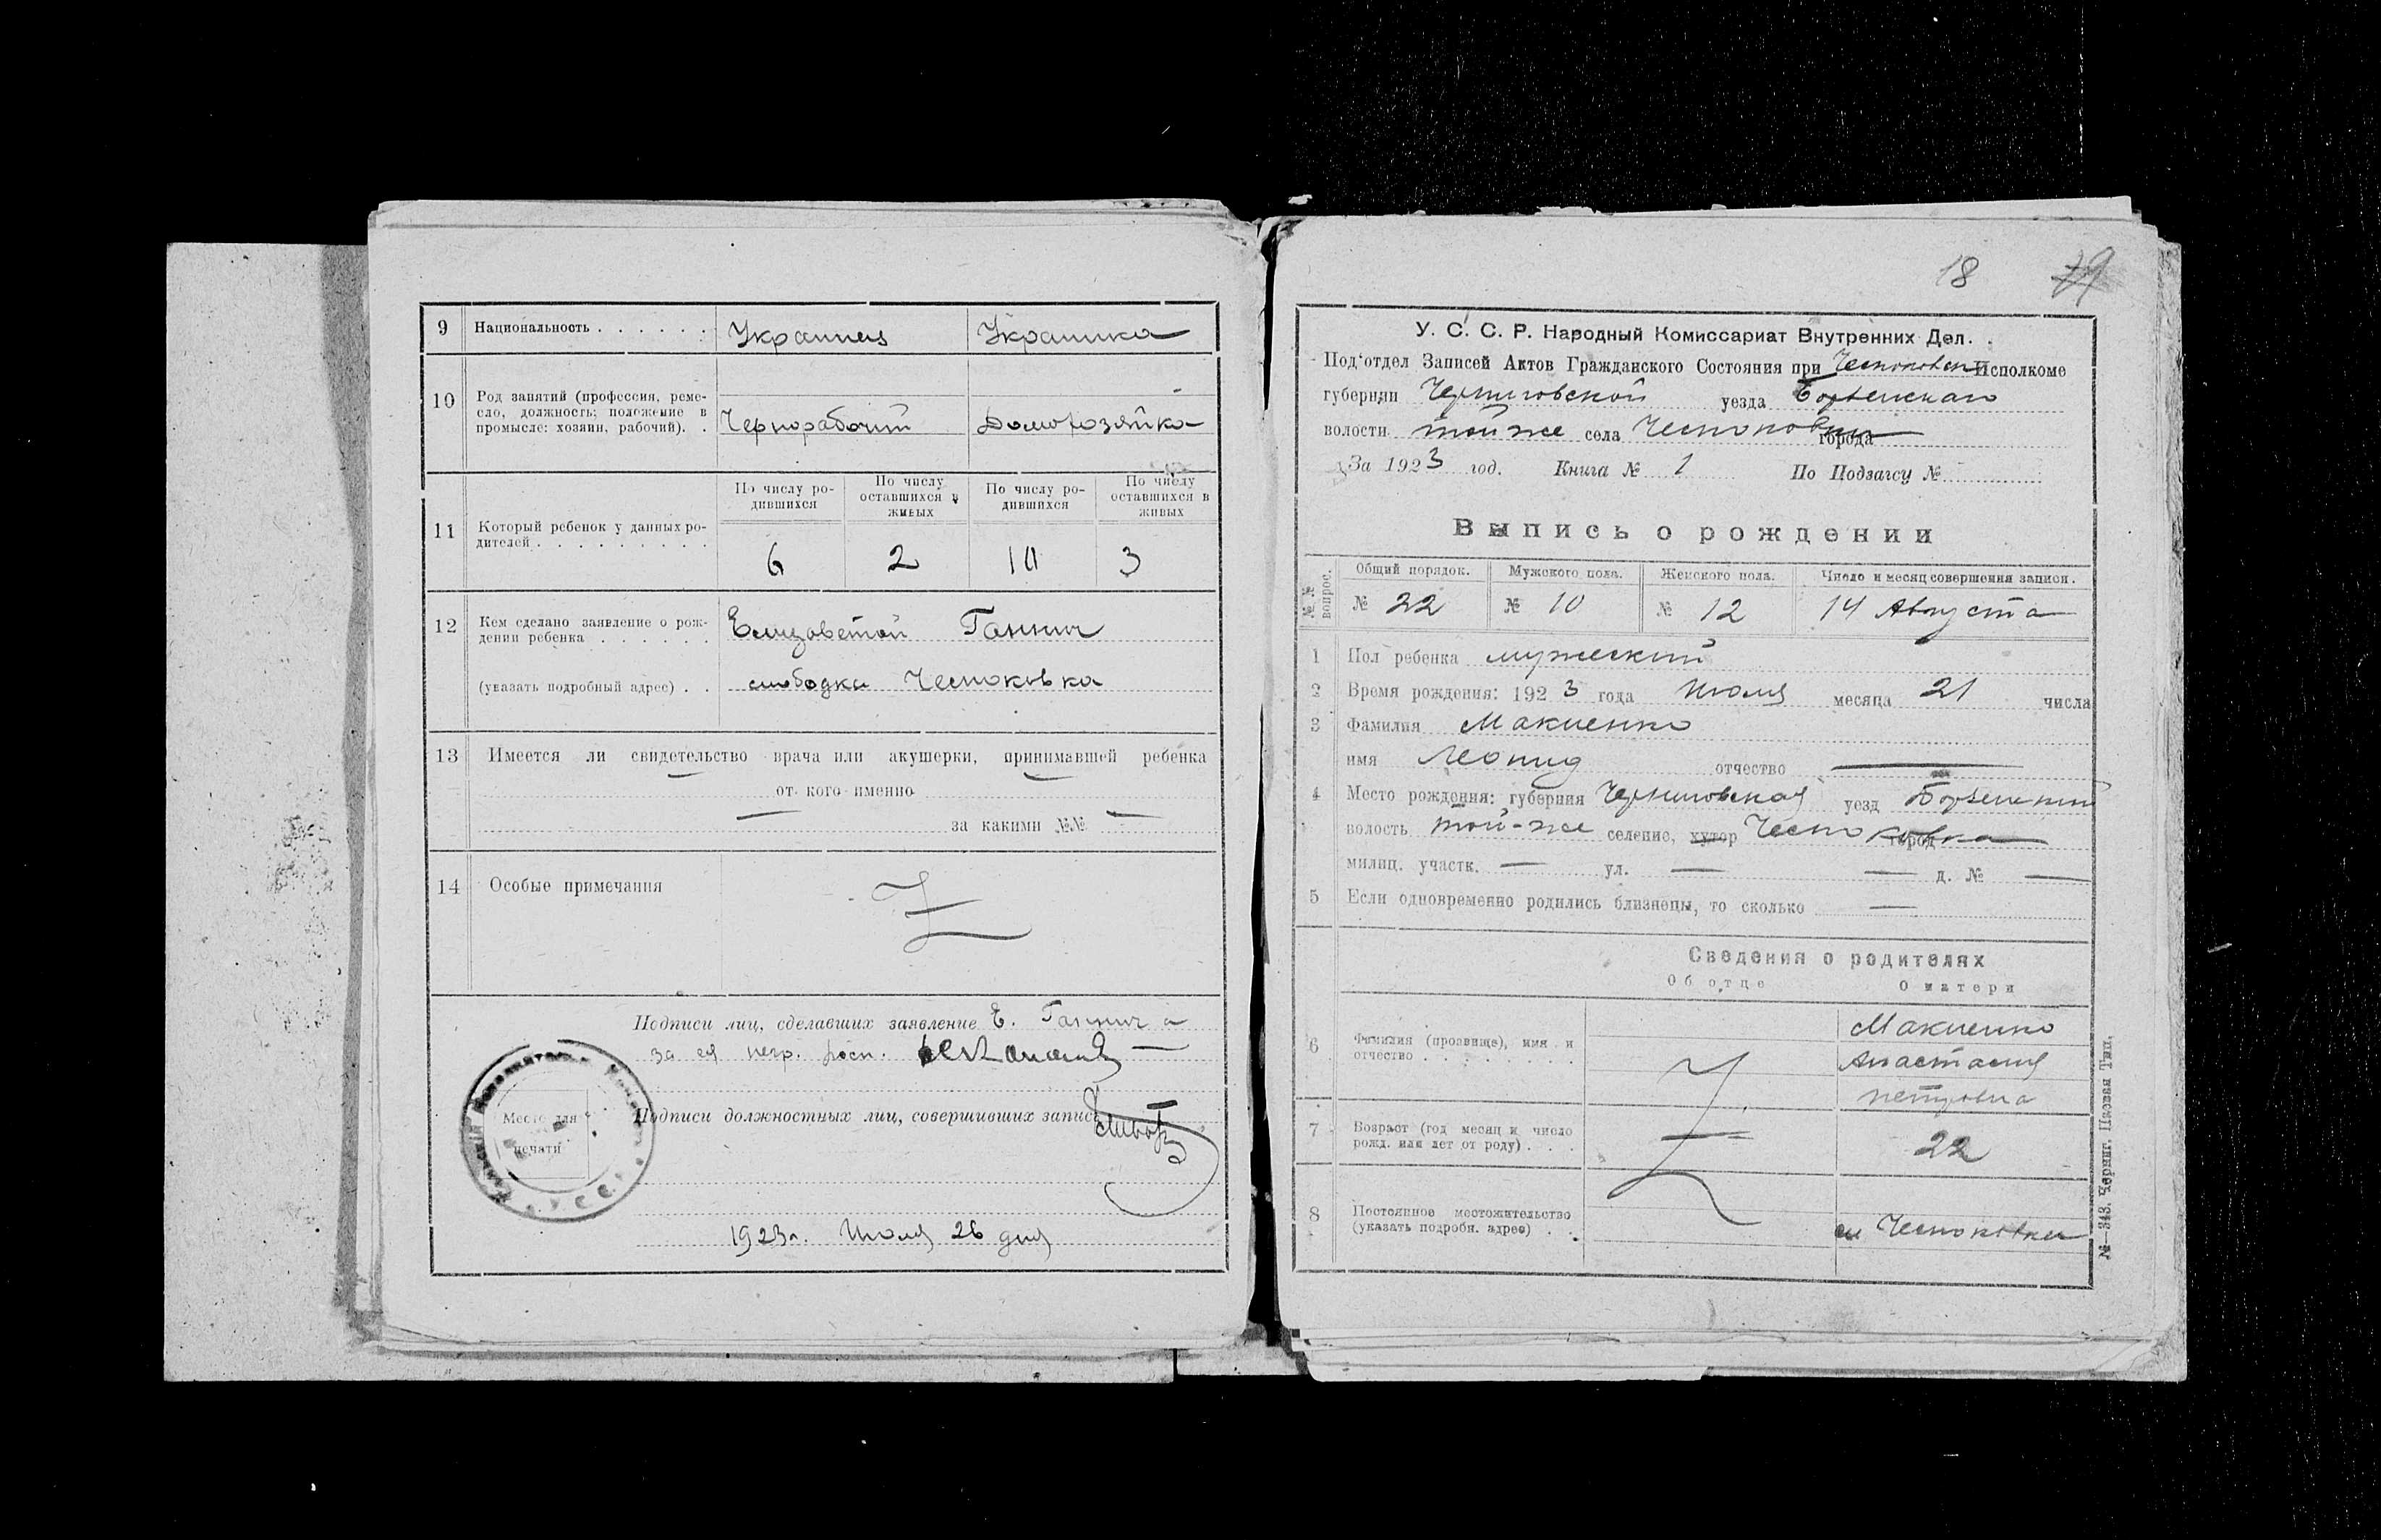 9 Национальность . . . . . . Украинец Украинка
10 Род занятий (профессия, реме-
сло, должность; положение в
промысле: хозяин, рабочий). . Чернорабочий Домохозяйка
11 Который ребенок у данных ро-
дителей . . . . . . . . .
По числу ро-
дившихся
По числу
оставшихся в
живых
По числу ро-
дившихся
По числу
оставшихся в
живых
6 2 10 3
12 Кем сделано заявление о рож-
дении ребенка . . . . . . Елизаветой Ганнич
(указать подробный адрес) . . слободка Чесноковка
13 Имеется ли свидетельство врача или акушерки, принимавшей ребенка
— от кого именно —
— за какими №№ —
14 Особые примечания
Подписи лиц, сделавших заявление Е. Ганнич а
за ея негр. росп.
Подписи должностных лиц, совершивших запись
Место для
печати
1923 г. Июля 26 дня
18 79
У. С. С. Р. Народный Комиссариат Внутренних Дел.
Под'отдел Записей Актов Гражданского Состояния при Чесноковск Исполкоме
губернии Черниговской уезда Борзенского
волости той же села Чесноковки города
За 1923 год. Книга № 1 По Подзагсу №
Выпись о рождении
№№ вопрос.
Общий порядок. Мужского пола. Женского пола. Число и месяц совершения записи.
№ 22 № 10 № 12 14 Августа
1 Пол ребенка мужеский
2 Время рождения: 1923 года Июля месяца 21 числа
3 Фамилия Макиенко
имя Леонид отчество —
4 Место рождения: губерния Черниговская уезд Борзенский
волость той-же селение, хутор Чесноковка город
милиц. участк. — ул. — — д. № —
5 Если одновременно родились близнецы, то сколько —
Сведения о родителях
Об отце О матери
6 Фамилия (прозвище), имя и
отчество . . . . . . . . .
Макиенко
Анастасия
Петровна
7 Возраст (год месяц и число
рожд. или лет от роду) . . . 22
8 Постоянное местожительство
(указать подробн. адрес) . . сл Чесноковка
№—343. Черниг. Циновая Тип.